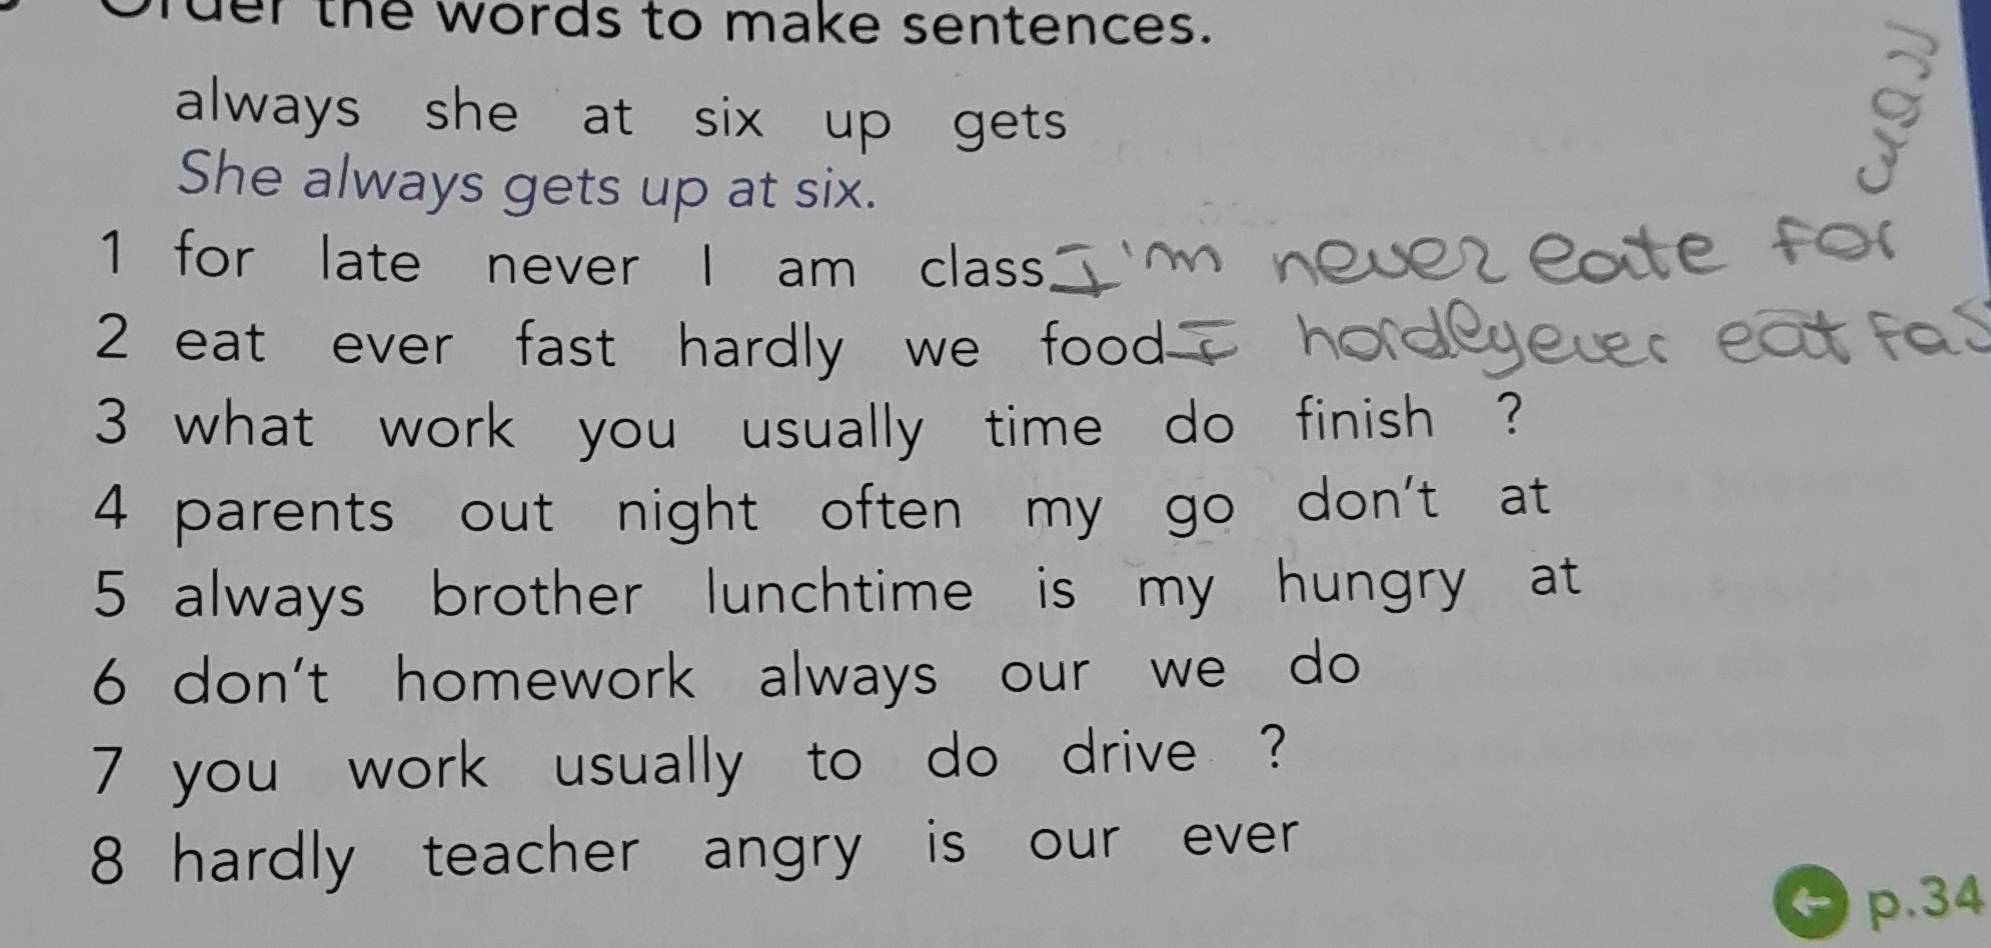 Order the words to make sentences.
always she at six up gets
She always gets up at six.
1 for late never I am class I'm never eate for class
2 eat ever fast hardly we food I hardly ever eat fas
3 what work you usually time do finish ?
4 parents out night often my go don't at
5 always brother lunchtime is my hungry at
6 don't homework always our we do
7 you work usually to do drive ?
8 hardly teacher angry is our ever
p.34